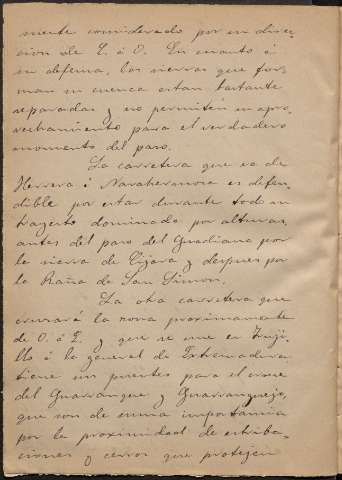 mente considerado por su direc-
cion de E. á O. En cuanto á
su defensa, las sierras que for-
man su cuenca estan bastante
separadas y no permiten su apro-
vechamiento para el verdadero
momento del paso.
La carretera que va de
Herrera á Navahermosa es defen-
dible por estar durante todo su
trayecto dominado por alturas,
antes del paso del Guadiana por
la sierra de Cijara y despues por
la Raña de San Simon.
La otra carretera que
cruzará la zona proximamente
de O. á E. y que se une en Truji-
llo á la general de Extremadura
tiene sus puentes para el cruce
del Guarranque y Guarranquejo,
que son de suma importancia
por la proximidad de estriba-
ciones y cerros que protejen